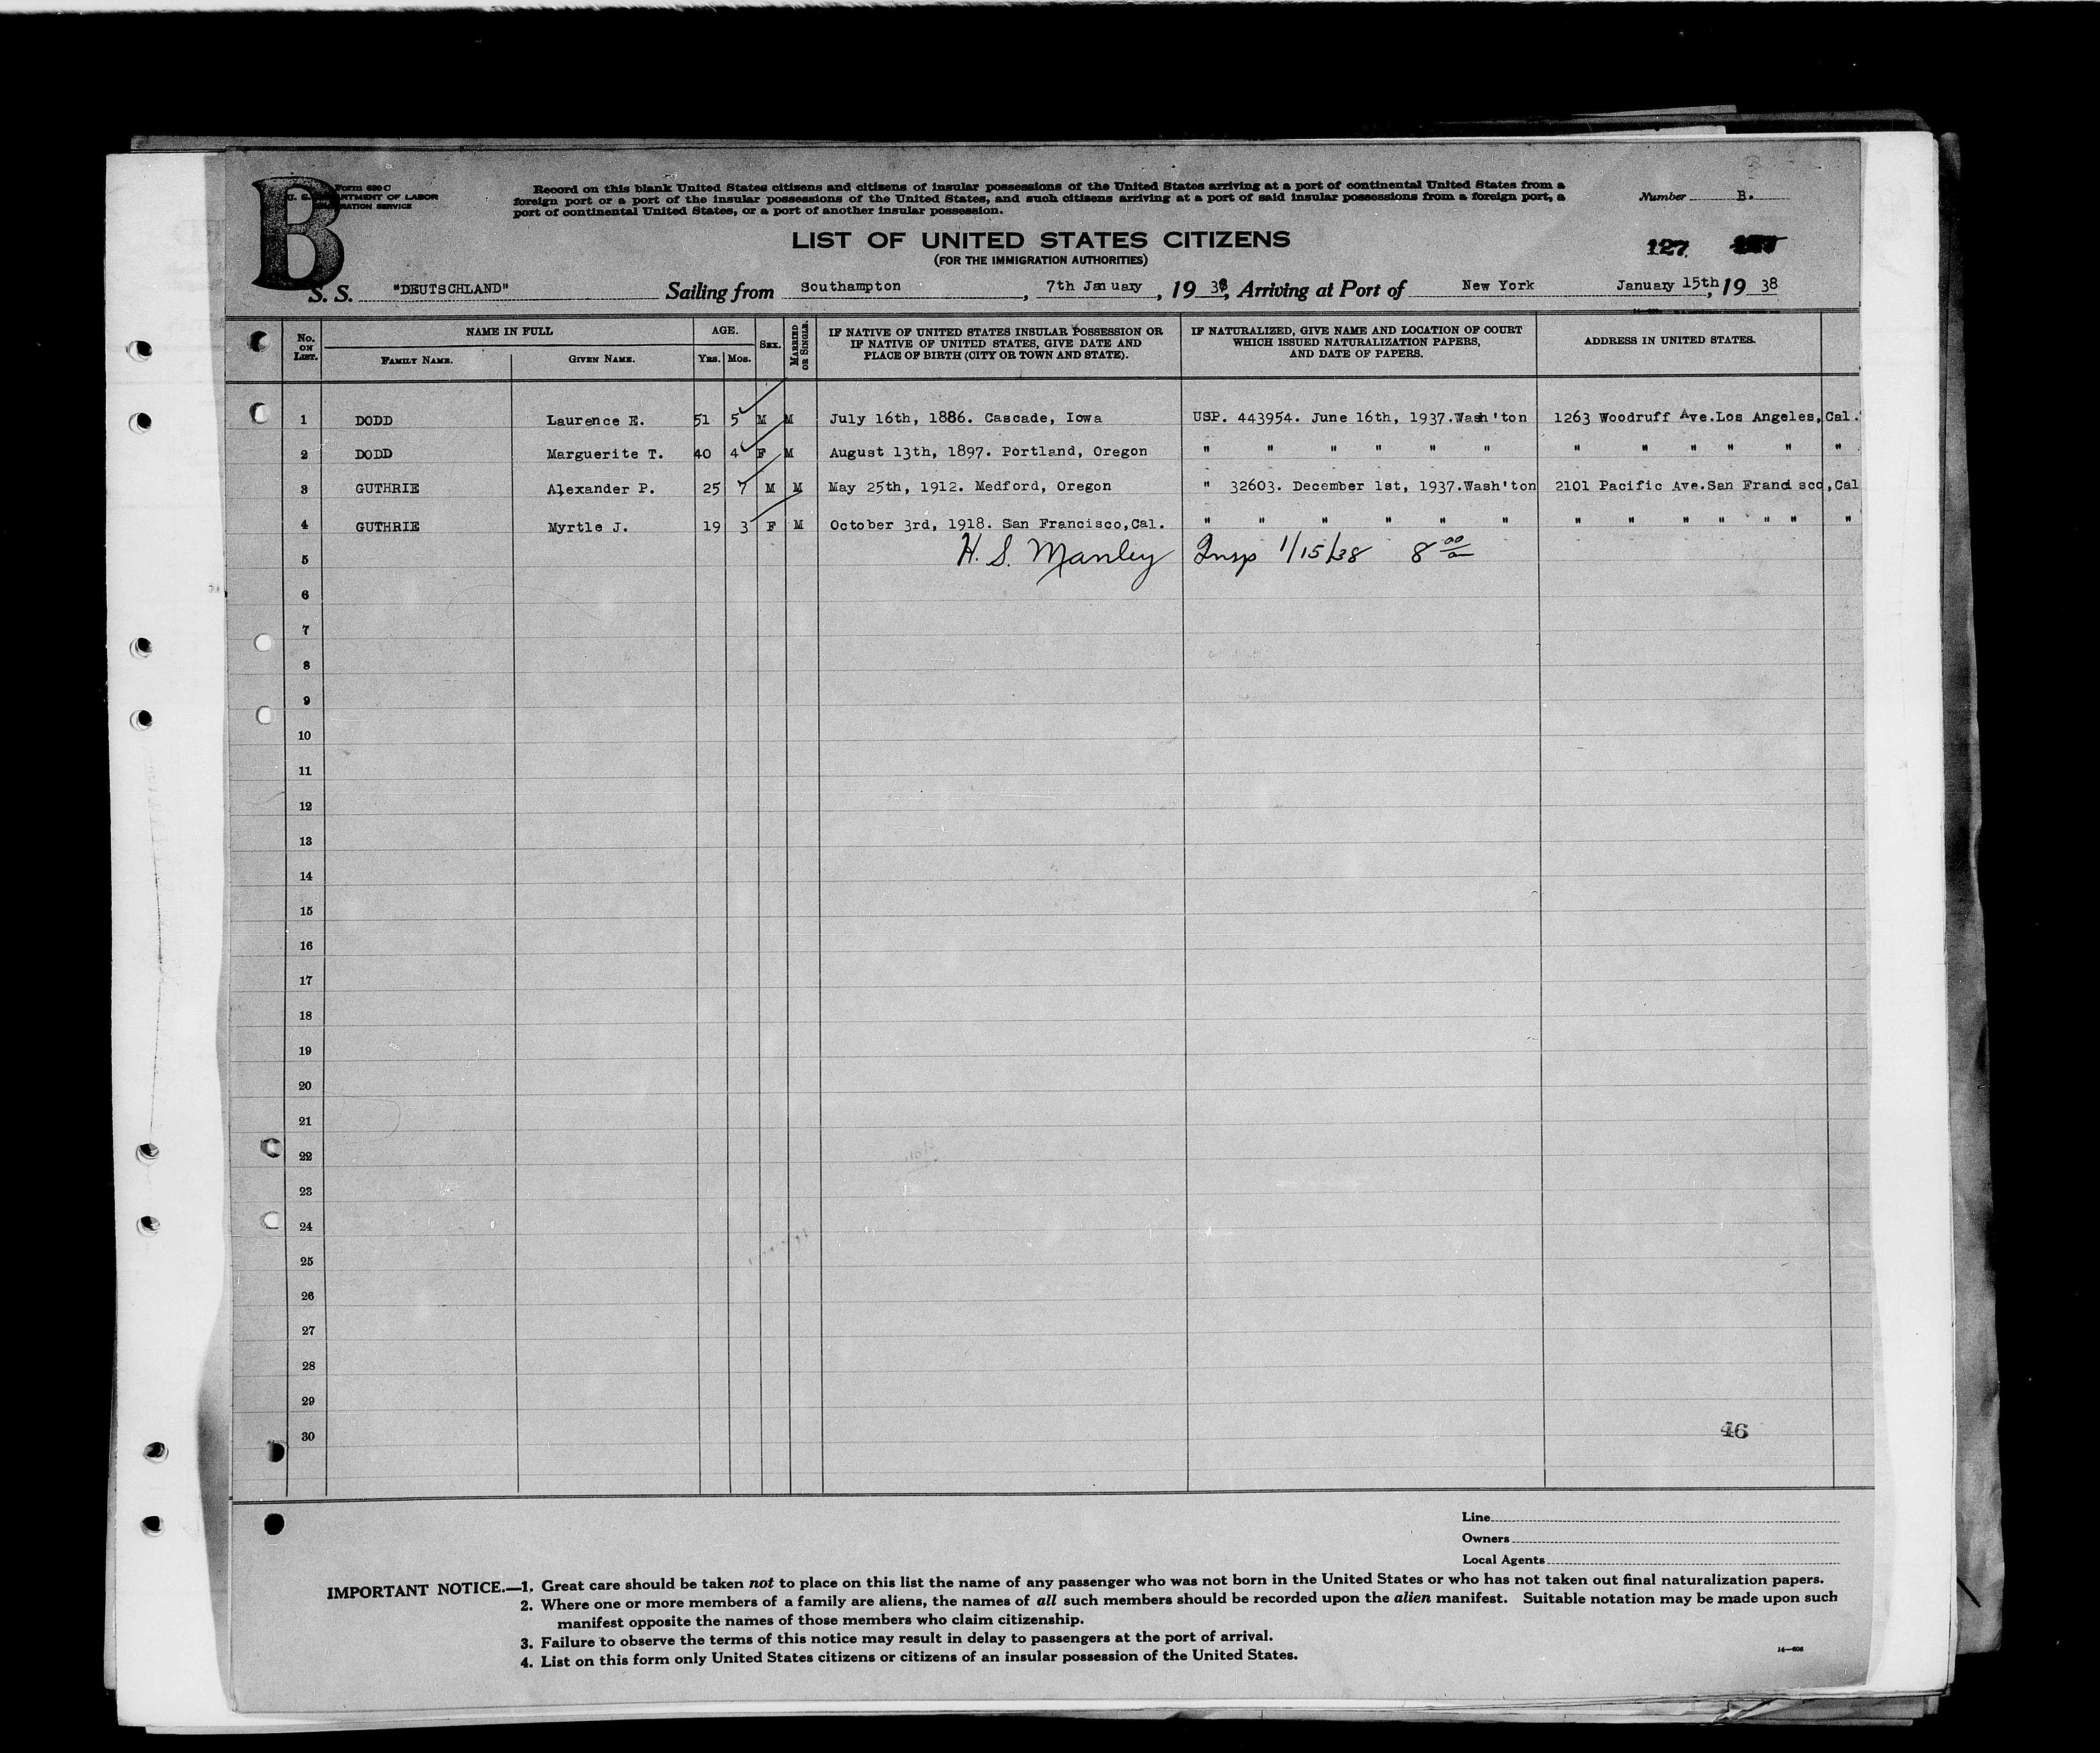 B
Form 630 C
U. S. DEPARTMENT OF LABOR
IMMIGRATION SERVICE
Record on this blank United States citizens and citizens of insular possessions of the United States arriving at a port of continental United States from a
foreign port or a port of the insular possessions of the United States, and such citizens arriving at a port of said insular possessions from a foreign port, a
port of continental United States, or a port of another insular possession.
Number B.
LIST OF UNITED STATES CITIZENS
(FOR THE IMMIGRATION AUTHORITIES)
127
S. S. "DEUTSCHLAND" Sailing from Southampton, 7th January, 1938, Arriving at Port of New York January 15th, 1938
No. ON LIST. NAME IN FULL AGE. SEX. MARRIED OR SINGLE. IF NATIVE OF UNITED STATES INSULAR POSSESSION OR IF NATIVE OF UNITED STATES, GIVE DATE AND PLACE OF BIRTH (CITY OR TOWN AND STATE). IF NATURALIZED, GIVE NAME AND LOCATION OF COURT WHICH ISSUED NATURALIZATION PAPERS, AND DATE OF PAPERS. ADDRESS IN UNITED STATES.
FAMILY NAME. GIVEN NAME. YRS. MOS.
1 DODD Laurence E. 51 5 M M July 16th, 1886. Cascade, Iowa USP. 443954. June 16th, 1937.Wash'ton 1263 Woodruff Ave.Los Angeles, Cal.
2 DODD Marguerite T. 40 4 F M August 13th, 1897. Portland, Oregon " " " " " " " " " " " "
3 GUTHRIE Alexander P. 25 7 M M May 25th, 1912. Medford, Oregon " 32603. December 1st, 1937.Wash'ton 2101 Pacific Ave.San Francisco,Cal
4 GUTHRIE Myrtle J. 19 3 F M October 3rd, 1918. San Francisco,Cal. " " " " " " " " " " " " "
5 H. S. Manley Insp 1/15/38 8 00/a
6
7
8
9
10
11
12
13
14
15
16
17
18
19
20
21
22
23
24
25
26
27
28
29
30
46
Line
Owners
Local Agents
IMPORTANT NOTICE.—1. Great care should be taken not to place on this list the name of any passenger who was not born in the United States or who has not taken out final naturalization papers.
2. Where one or more members of a family are aliens, the names of all such members should be recorded upon the alien manifest. Suitable notation may be made upon such
manifest opposite the names of those members who claim citizenship.
3. Failure to observe the terms of this notice may result in delay to passengers at the port of arrival.
4. List on this form only United States citizens or citizens of an insular possession of the United States.
14—608